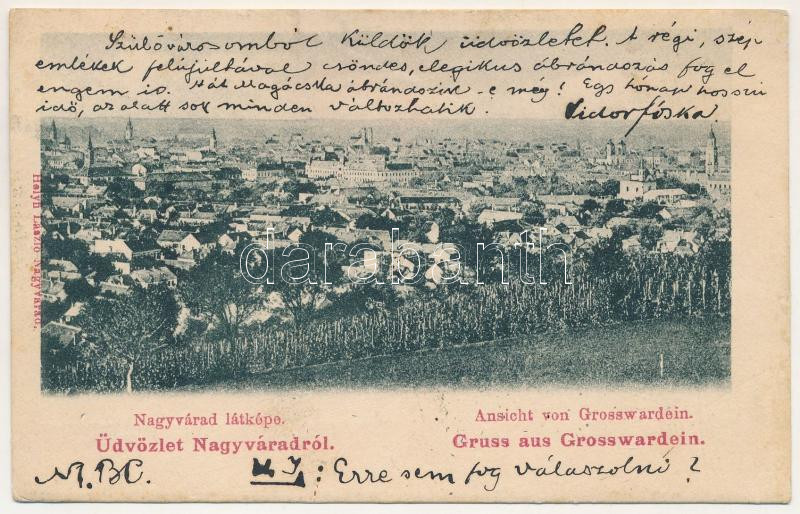 Szülővárosomból küldök üdvözletet. A régi, szép
emlékek felújultával csöndes, elegikus ábrándozás fog el
engem is. Hát Magácska ábrándozik-e még? Egy hónap hosszú
idő, az alatt sok minden változhatik. Sidorfóska.
Helyfi László Nagyvárad.
darabanth.com
Nagyvárad látképe.
Ansicht von Grosswardein.
Üdvözlet Nagyváradról.
Gruss aus Grosswardein.
N. B.: Erre sem fog válaszolni?